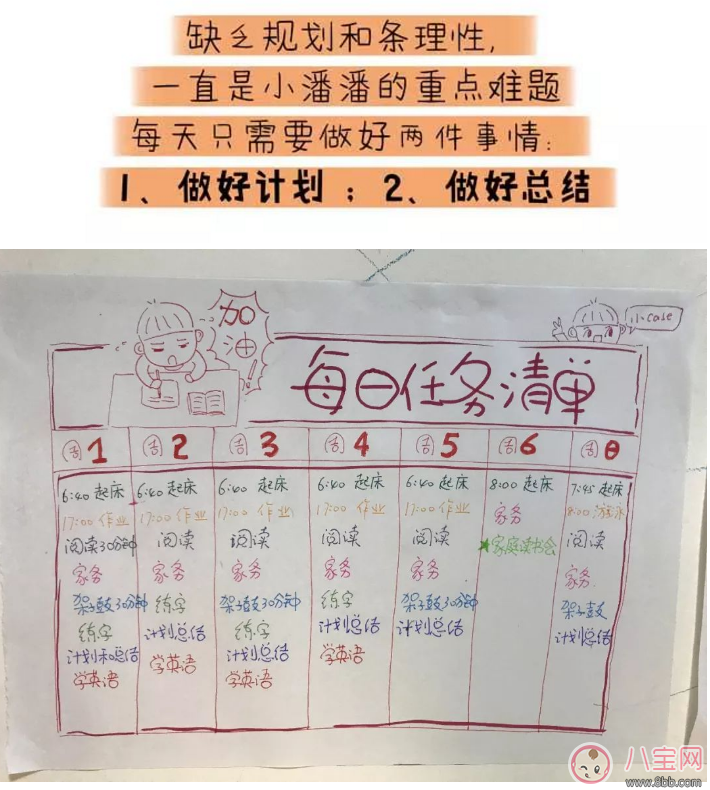 缺乏规划和条理性,
一直是小潘潘的重点难题
每天只需要做好两件事情:
1、做好计划 ; 2、做好总结
加油!
小case
每日任务清单
周1 周2 周3 周4 周5 周6 周日
6:40 起床 6:40 起床 6:40 起床 6:40 起床 6:40 起床 8:00 起床 7:45 起床
17:00 作业 17:00 作业 17:00 作业 17:00 作业 17:00 作业 家务 8:00 游泳
阅读30分钟 阅读 阅读 阅读 阅读 ★家庭读书会 阅读
家务 家务 家务 家务 家务 家务
架子鼓30分钟 练字 架子鼓30分钟 练字 架子鼓30分钟 架子鼓
练字 计划总结 练字 计划总结 计划总结 计划总结
计划和总结 学英语 计划总结 学英语
学英语 学英语
八宝网
www.8bb.com